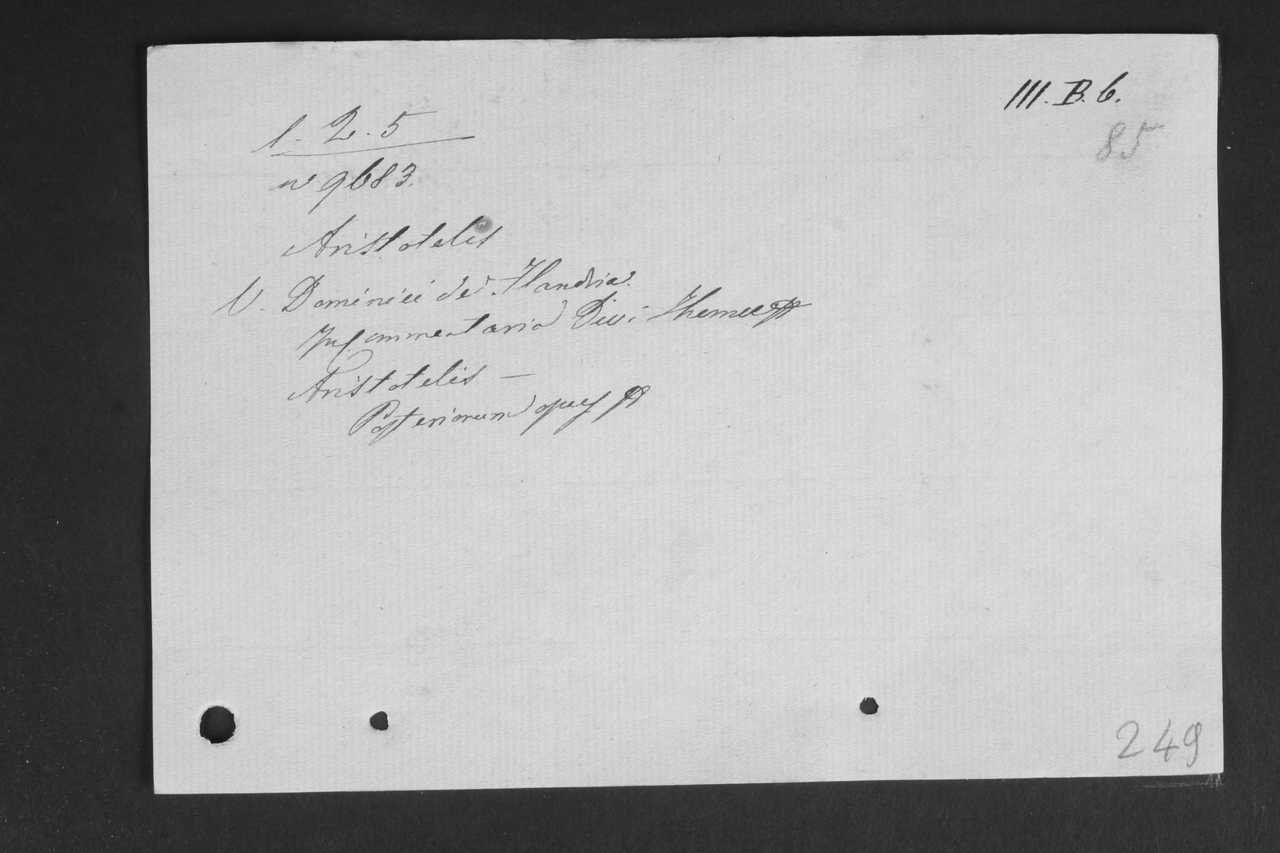 III. B. 6.
85
1. 2. 5
nº 9683.
Aristotelis
V. Dominici de Flandria
In Commentaria Divi Thome
Aristotelis —
Posteriorum opus
249